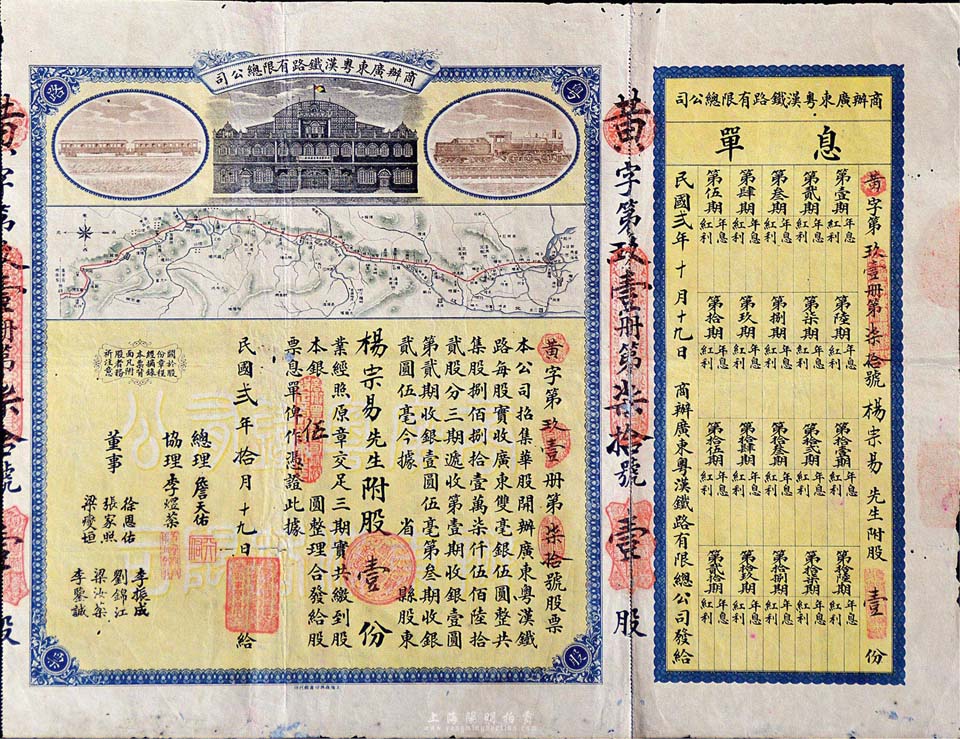 商辦廣東粵漢鐵路有限總公司
黃字第玖壹册第柒拾號股票
本公司招集華股開辦廣東粵漢鐵
路每股實收廣東雙毫銀伍圓整共
集股捌佰捌拾壹萬柒仟伍佰陸拾
貳股分三期遞收第壹期收銀壹圓
第貳期收銀壹圓伍毫第叁期收銀
貳圓伍毫今據 省 縣股東
楊宗易先生附股壹份
業經照原章交足三期實共繳到股
本銀伍圓整理合發給股
票息單俾作憑證此據
民國貳年拾月十九日給
總理詹天佑
協理李煜
董事
徐恩佑
張家照
梁燮垣
李振成
劉錦江
梁汝
李鑒誠
關於股
份章程
經摘錄
本票背
面凡附
股者務
祈注意
黃字第玖壹册第柒拾號 壹股
商辦廣東粵漢鐵路有限總公司
息單
黃字第玖壹册第柒拾號楊宗易先生附股壹份
第壹期 年息 紅利
第貳期 年息 紅利
第叁期 年息 紅利
第肆期 年息 紅利
第伍期 年息 紅利
第陸期 年息 紅利
第柒期 年息 紅利
第捌期 年息 紅利
第玖期 年息 紅利
第拾期 年息 紅利
第拾壹期 年息 紅利
第拾貳期 年息 紅利
第拾叁期 年息 紅利
第拾肆期 年息 紅利
第拾伍期 年息 紅利
第拾陸期 年息 紅利
第拾柒期 年息 紅利
第拾捌期 年息 紅利
第拾玖期 年息 紅利
第貳拾期 年息 紅利
民國貳年十月十九日商辦廣東粵漢鐵路有限總公司發給
上海陽明拍賣
www.yangmingauction.com